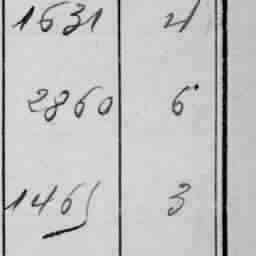 1631 4
2860 6
1465 3